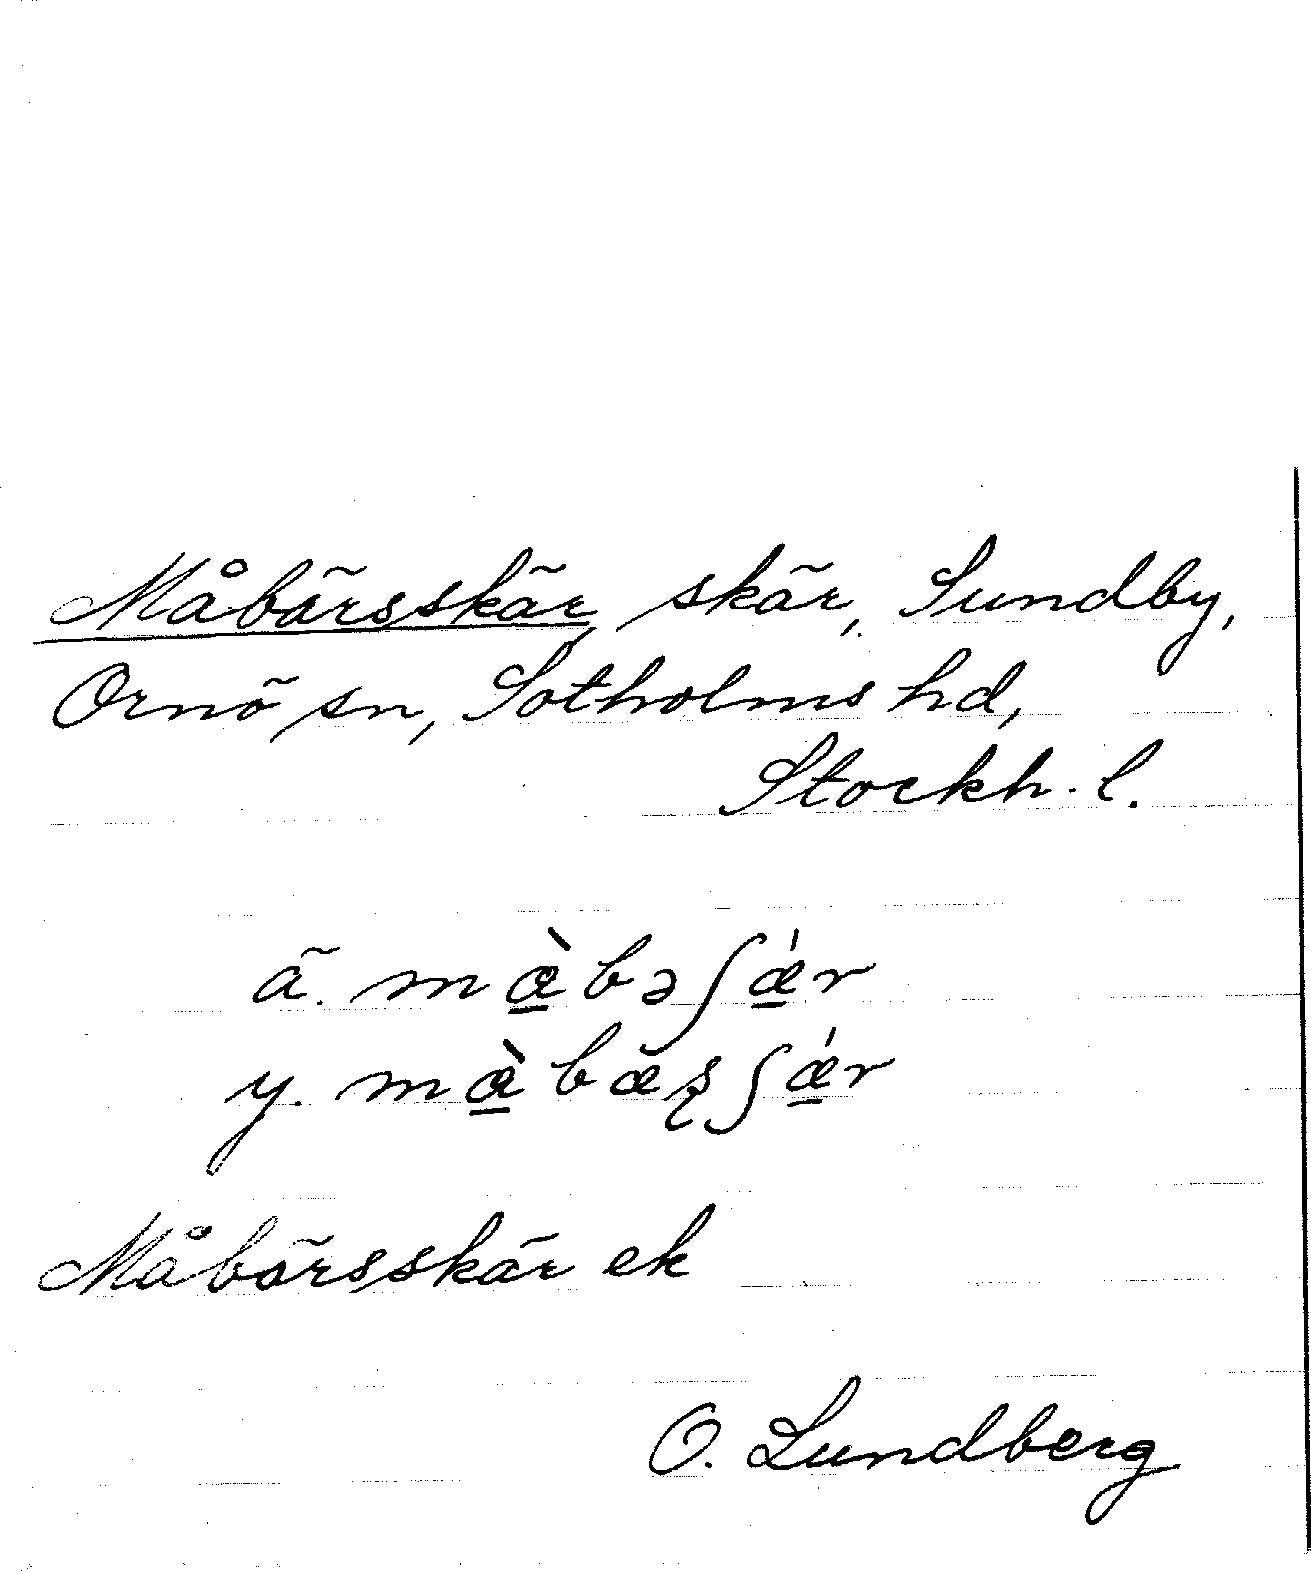 Måbärsskär, skär, Sundby,
Ornö sn, Sotholms hd,
Stockh. l.
ä. mæ̠̀bəʃǽ̠r
y. mæ̠̀bæʂʃǽ̠r
Måbärsskär ek
O. Lundberg